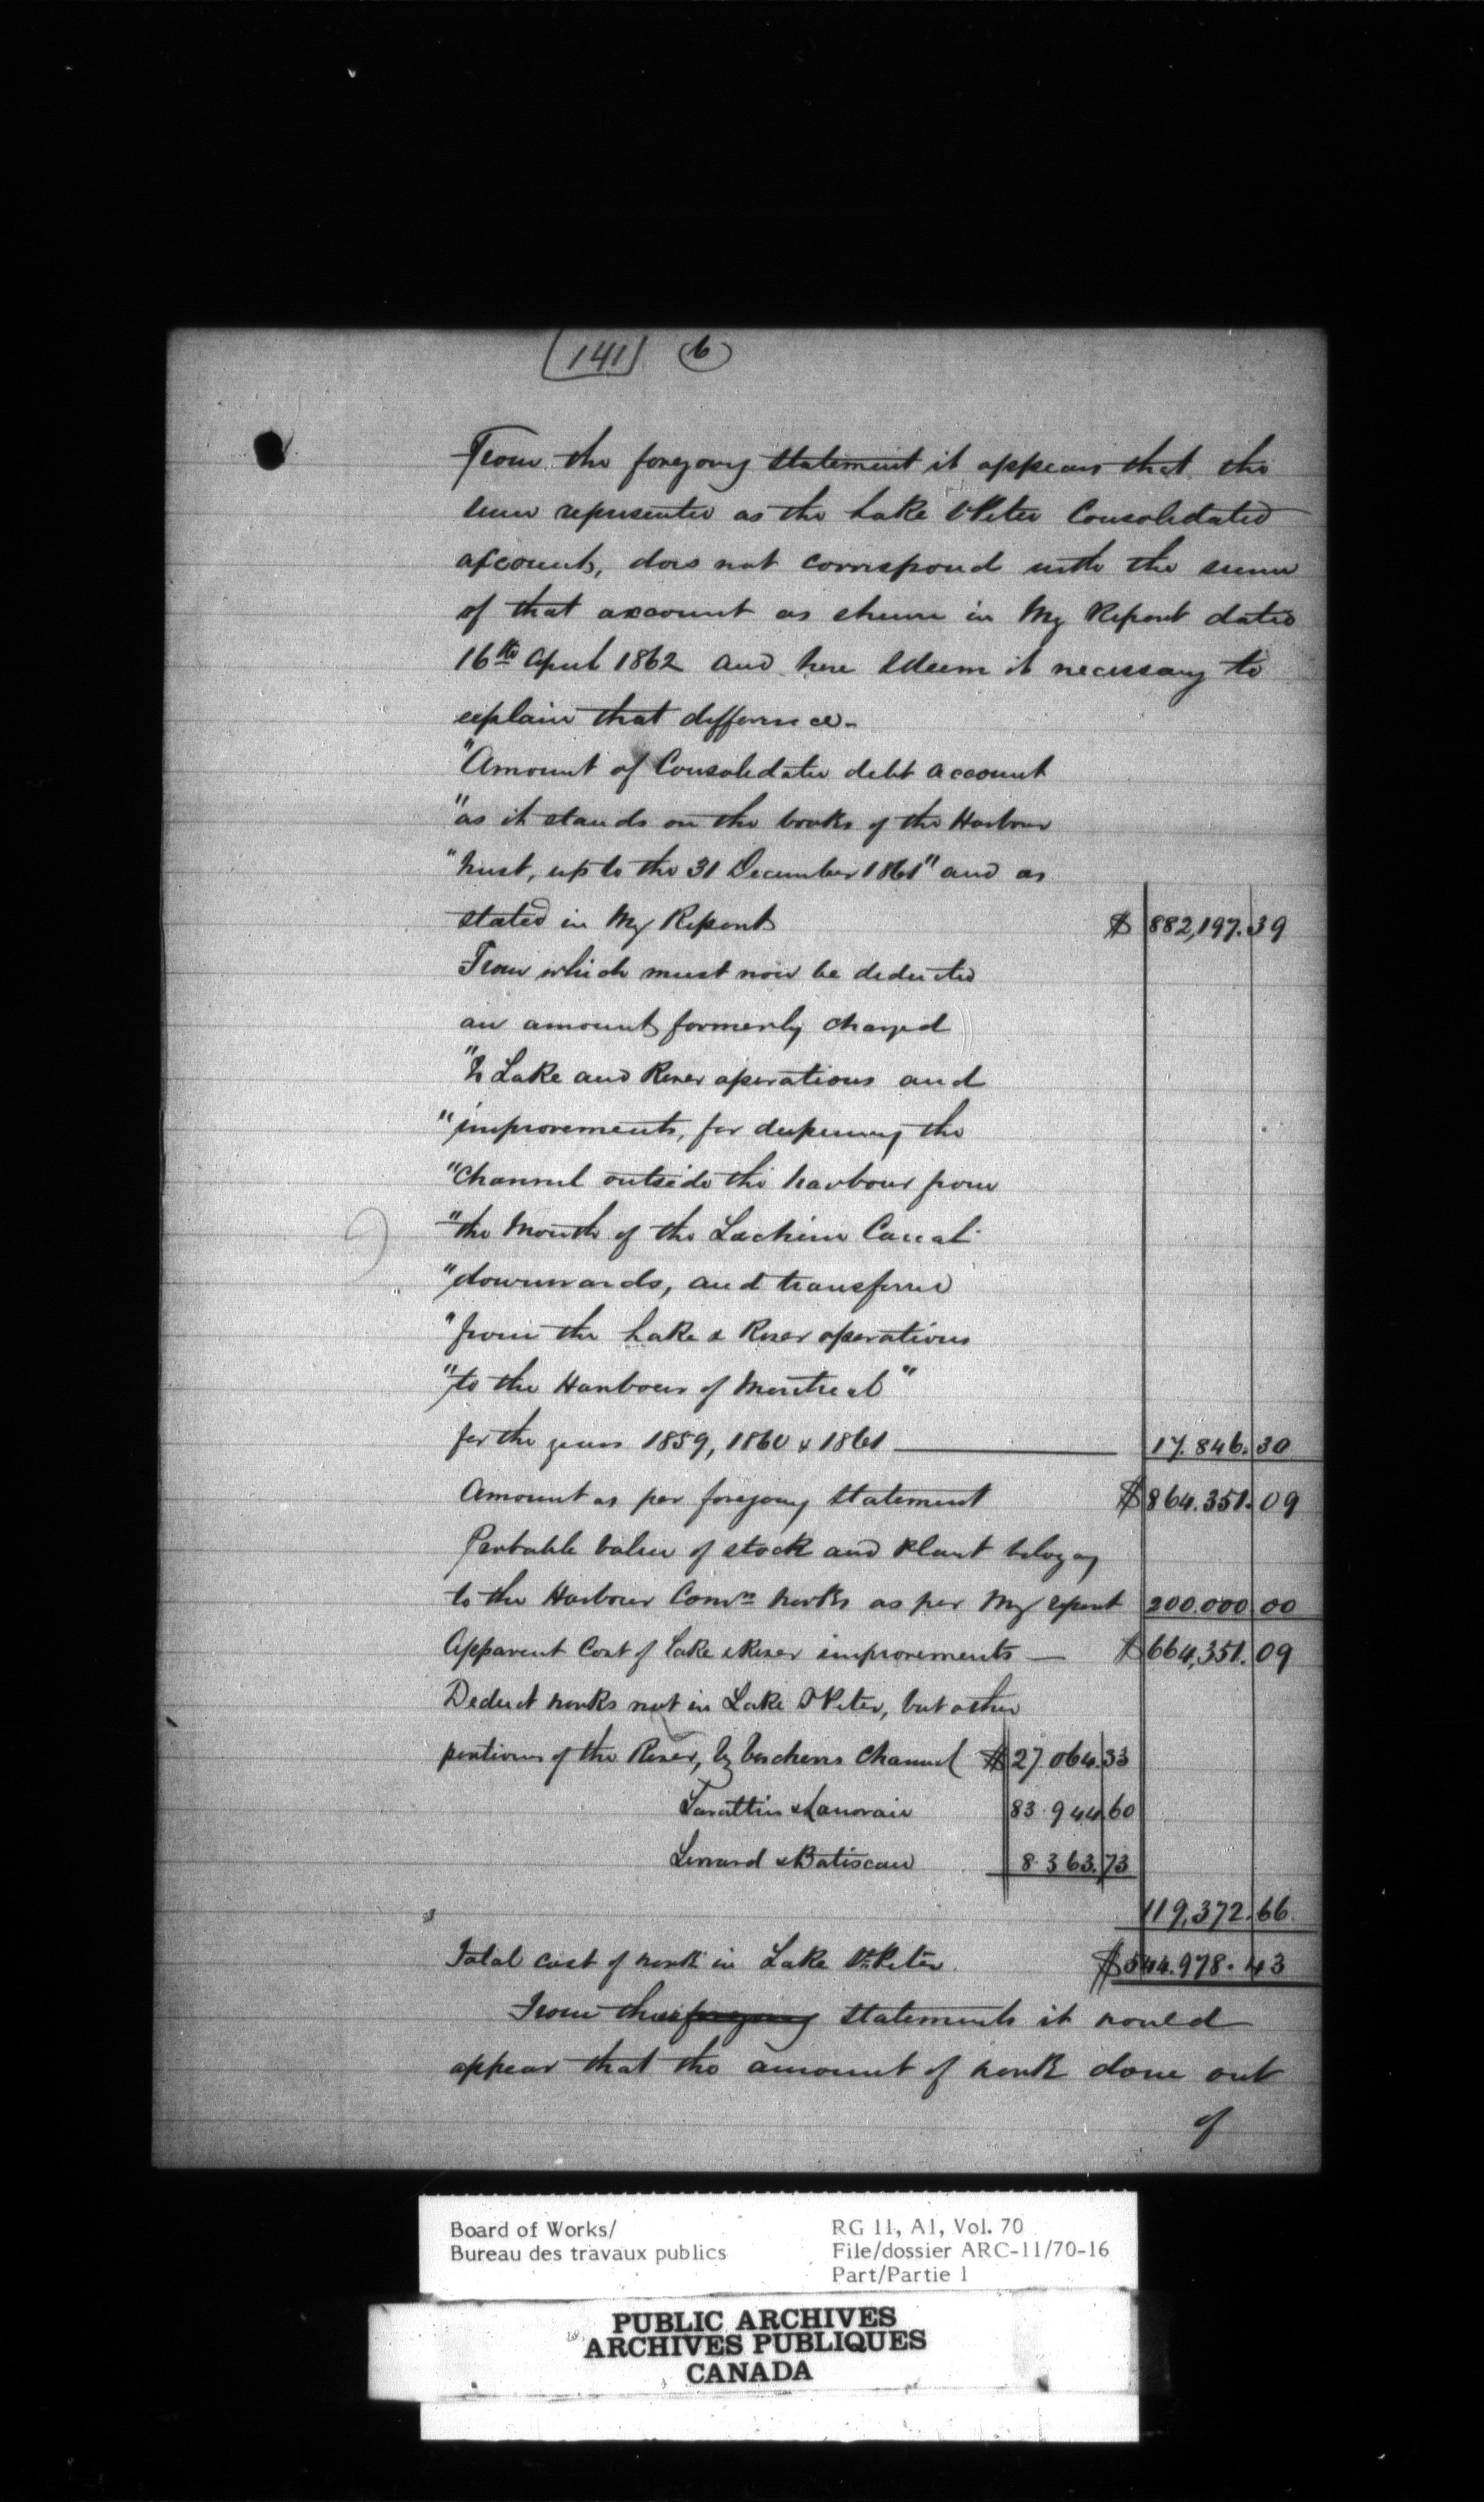 141 6
From the foregoing statement it appears that the
sum represented as the Lake St Peter Consolidated
account, does not correspond with the sum
of that account as shewn in my Report dated
16th April 1862 and here I deem it necessary to
explain that difference.
"Amount of Consolidated debt account
"as it stands on the books of the Harbour
"Trust, up to the 31 December 1861" and as
stated in my Report $ 882,197.39
From which must now be deducted
an amount formerly charged
"To Lake and River operations and
"improvements, for deepening the
"Channel outside the harbour from
"the Mouth of the Lachine Canal
"downwards, and transferred
"from the Lake & River operations
"to the Harbour of Montreal"
for the years 1859, 1860 & 1861 17.846.30
Amount as per foregoing statement $864.351.09
Probable value of stock and plant belongg
to the Harbour Comrs works as per my report 200.000 00
Apparent Cost of Lake & River improvements — $664,351.09
Deduct works not in Lake St Peter, but other
portions of the River, Vercheres Channel $27.064.33
Lavaltrie & Lanoraie 83.944.60
Lenard & Batiscan 8.363.73
119,372.66
Total cost of work in Lake St. Peter $544.978.43
From these foregoing statements it would
appear that the amount of work done out
of
Board of Works/
Bureau des travaux publics
RG 11, A1, Vol. 70
File/dossier ARC-11/70-16
Part/Partie 1
PUBLIC ARCHIVES
ARCHIVES PUBLIQUES
CANADA